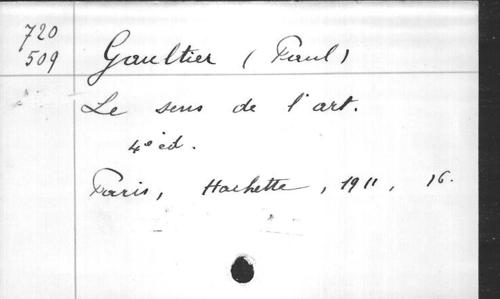 720
509
Gaultier (Paul)
Le sens de l'art.
4e éd.
Paris, Hachette, 1911, 16.